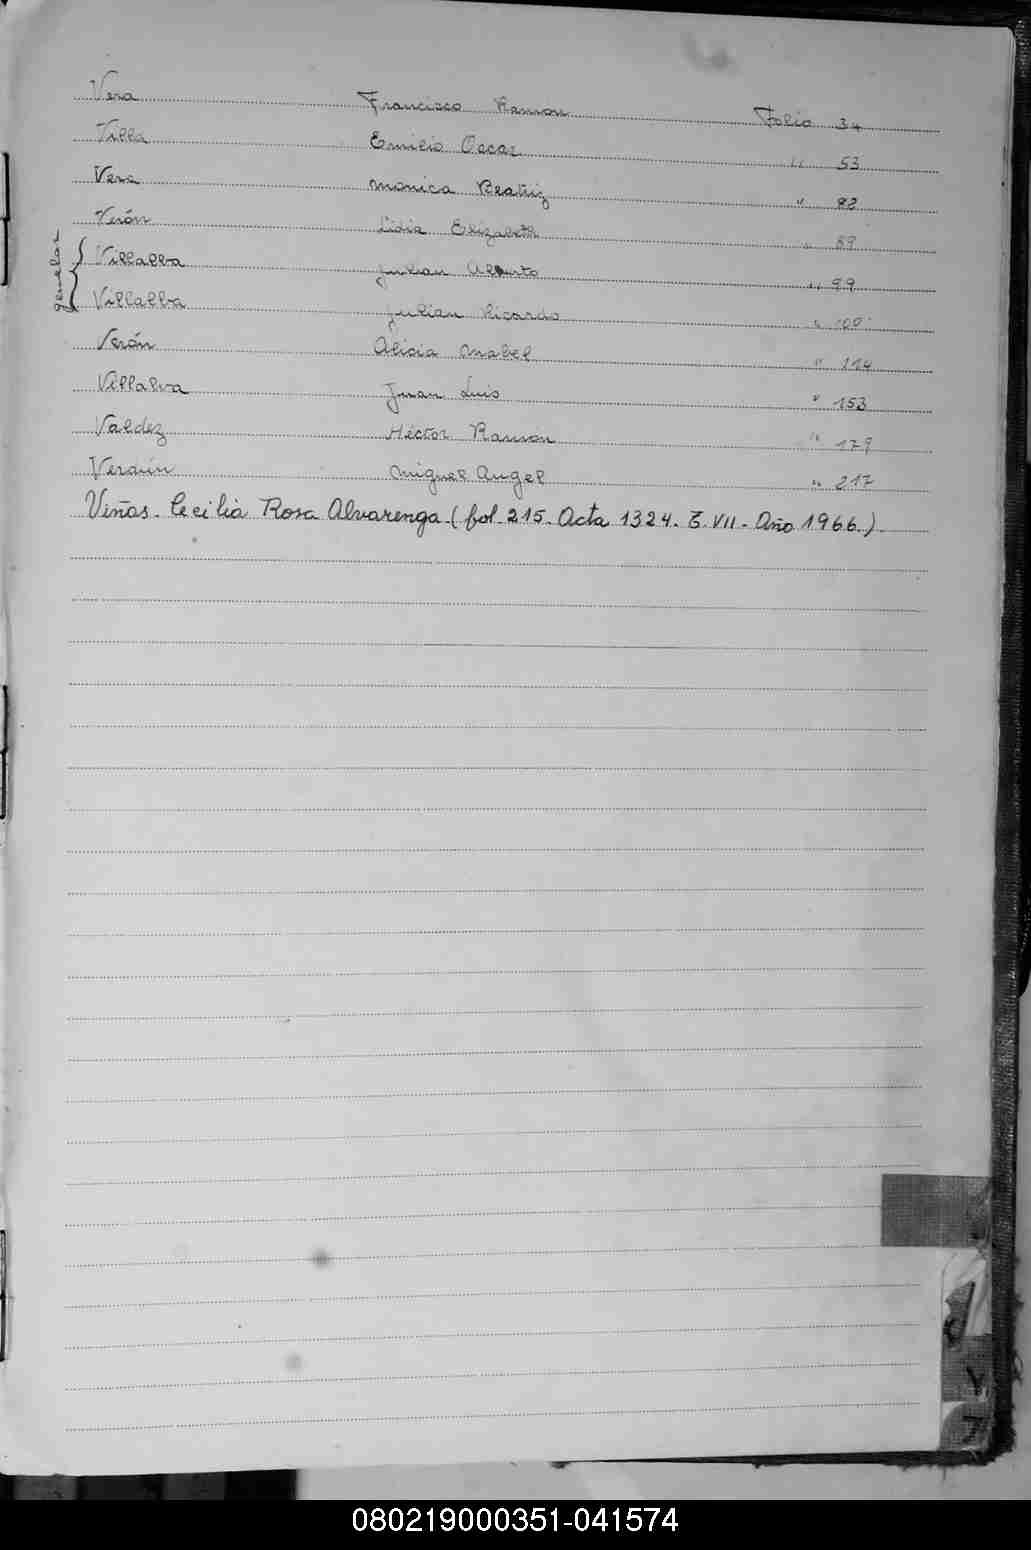 Vera Francisco Ramon Folio 34
Villa Emilio Oscar " 53
Vera Monica Beatriz " 82
Verón Lidia Elizabeth " 89
gemelos { Villalba Julian Alberto " 99
Villalba Julian Ricardo " 100
Verón Alicia Mabel " 114
Villalva Juan Luis " 153
Valdez Héctor Ramon " 179
Verdún Miguel Angel " 217
Viñas. Cecilia Rosa Alvarenga (fol. 215. Acta 1324. T. VII - Año 1966.)
V
080219000351-041574